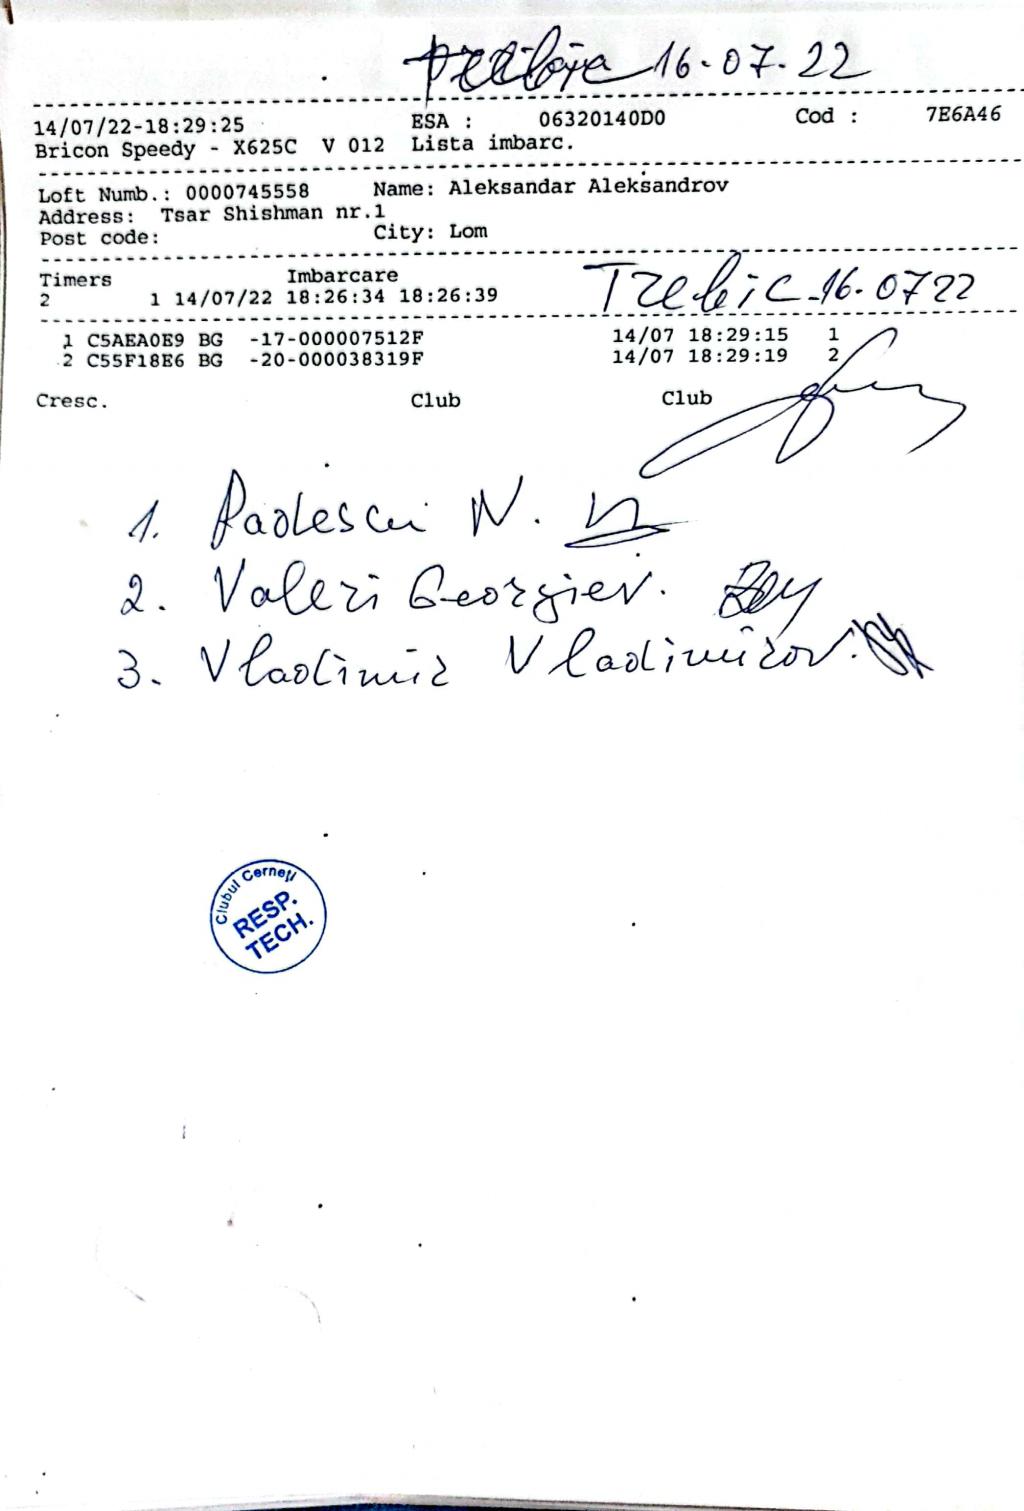 16.07.22
14/07/22-18:29:25 ESA : 06320140D0 Cod : 7E6A46
Bricon Speedy - X625C V 012 Lista imbarc.
Loft Numb.: 0000745558 Name: Aleksandar Aleksandrov
Address: Tsar Shishman nr.1
Post code: City: Lom
Timers Imbarcare
2 1 14/07/22 18:26:34 18:26:39 Trebic 16.0722
1 C5AEA0E9 BG -17-000007512F 14/07 18:29:15 1
2 C55F18E6 BG -20-000038319F 14/07 18:29:19 2
Cresc. Club Club
1. Padescu N.
2. Valeri Georgiev.
3. Vladimir Vladimirov.
Clubul Cerneți
RESP.
TECH.